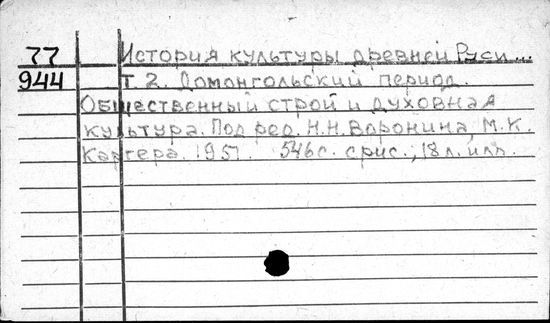 77 История культуры древней Руси...
944 Т 2. Домонгольский период.
Общественный строй и духовная
культура. Под ред. Н.Н. Воронина, М.К.
Каргера. 1951. 546с. с рис., 18 л. илл.